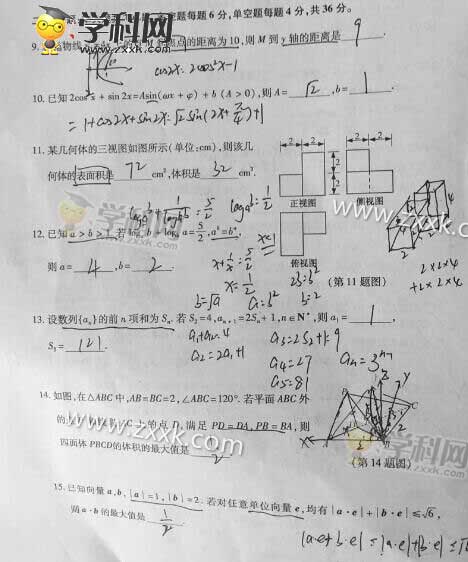 每题6分,单空题每题4分,共36分。
学科网
www.zxxk.com
9. 点的距离为10,则M到y轴的距离是 9 .
cos2x=2cos²x-1
10. 已知2cos²x+sin2x=Asin(ωx+φ)+b(A>0),则A= √2 ,b= 1 .
=1+cos2x+sin2x=√2sin(2x+π/4)+1
11. 某几何体的三视图如图所示(单位:cm),则该几
何体的表面积是 72 cm²,体积是 32 cm³.
2 2 2
2
2
正视图 侧视图
俯视图
(第11题图)
2×2×4
+2×2×4
12. 已知a>b>1.若log a=5/2,aᵇ=bᵃ,
则a= 4 ,b= 2 .
logₐb=1/2
x+1/x=5/2
x=1/2
b=√a a=b² 2b=b² b=2
13. 设数列{aₙ}的前n项和为Sₙ.若S₂=4,aₙ₊₁=2Sₙ+1,n∈N*,则a₁= 1 ,
S₅= 121 .
a₁+a₂=4
a₂=2a₁+1
a₃=2S₂+1=9
a₄=27
a₅=81
aₙ=3ⁿ⁻¹
14. 如图,在△ABC中,AB=BC=2,∠ABC=120°.若平面ABC外
的点D,满足PD=DA,PB=BA,则
四面体PBCD的体积的最大值是 1/2
(第14题图)
www.zxxk.com
学科网
15. 已知向量a,b,|a|=1,|b|=2.若对任意单位向量e,均有|a·e|+|b·e|≤√6,
则a·b的最大值是 1/2
|a·e+b·e|≤|a·e|+|b·e|≤